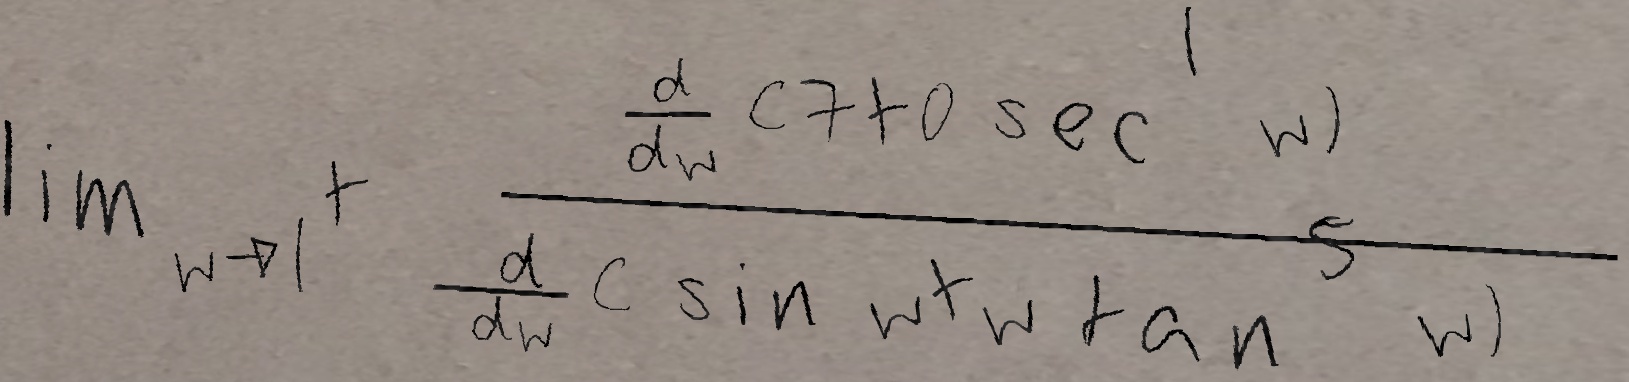 \lim_{w \to 1^+} \frac{\frac{d}{dw}(7+0\sec^1 w)}{\frac{d}{dw}(\sin w + w\tan^5 w)}